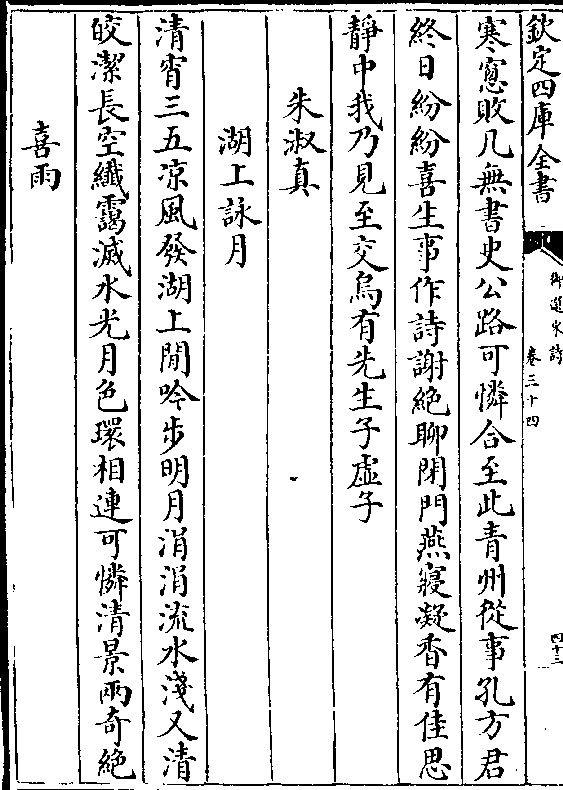 欽定四庫全書
御選宋詩
卷三十四
四十三
寒窻敗几無書史公路可憐合至此青州從事孔方君
終日紛紛喜生事作詩謝絶聊閉門燕寢凝香有佳思
靜中我乃見至交烏有先生子虛子
朱淑真
湖上詠月
清宵三五凉風發湖上閒吟步明月涓涓流水淺又清
皎潔長空纖靄滅水光月色環相連可憐清景兩奇絶
喜雨